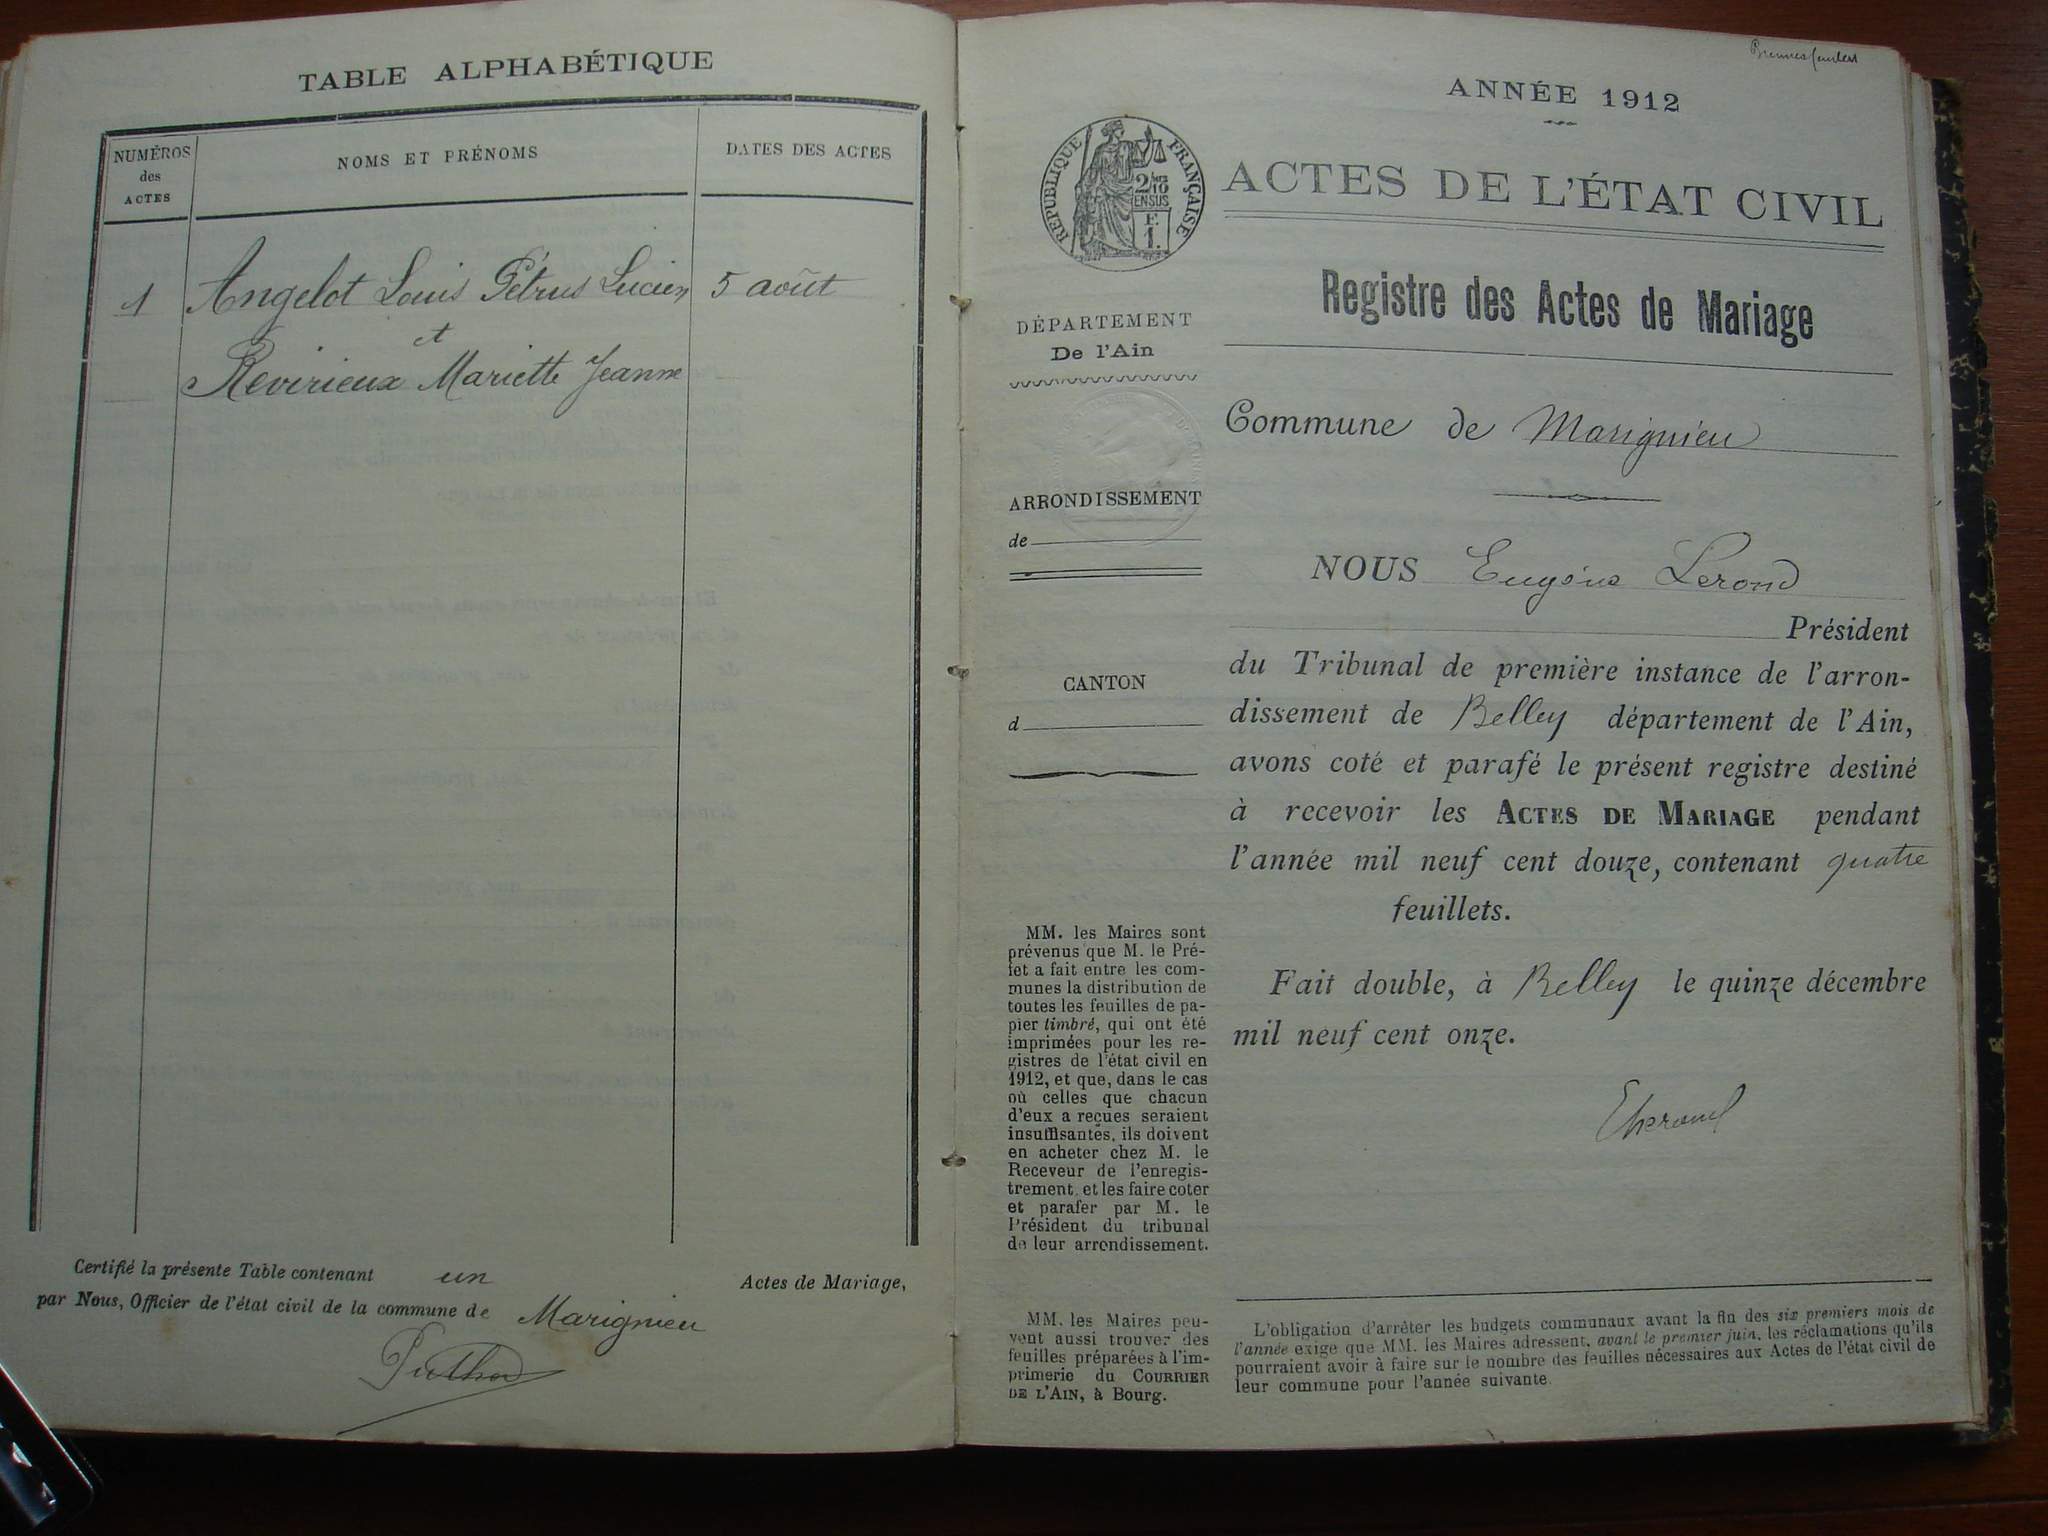 TABLE ALPHABÉTIQUE
NUMÉROS
des
ACTES
NOMS ET PRÉNOMS
DATES DES ACTES
1 Angelot Louis Pétrus Lucien 5 août
et
Revirieux Mariette Jeanne
Certifié la présente Table contenant un Actes de Mariage,
par Nous, Officier de l'état civil de la commune de Marignieu
ANNÉE 1912
RÉPUBLIQUE FRANÇAISE
2/10
EN SUS
F.
1.
ACTES DE L'ÉTAT CIVIL
Registre des Actes de Mariage
DÉPARTEMENT
De l'Ain
Commune de Marignieu
ARRONDISSEMENT
de
CANTON
d
NOUS Eugène Lerond
Président
du Tribunal de première instance de l'arron-
dissement de Belley département de l'Ain,
avons coté et parafé le présent registre destiné
à recevoir les ACTES DE MARIAGE pendant
l'année mil neuf cent douze, contenant quatre
feuillets.
Fait double, à Belley le quinze décembre
mil neuf cent onze.
MM. les Maires sont
prévenus que M. le Pré-
fet a fait entre les com-
munes la distribution de
toutes les feuilles de pa-
pier timbré, qui ont été
imprimées pour les re-
gistres de l'état civil en
1912, et que, dans le cas
où celles que chacun
d'eux a reçues seraient
insuffisantes, ils doivent
en acheter chez M. le
Receveur de l'enregis-
trement, et les faire coter
et parafer par M. le
Président du tribunal
de leur arrondissement.
MM. les Maires peu-
vent aussi trouver des
feuilles préparées à l'im-
primerie du COURRIER
DE L'AIN, à Bourg.
L'obligation d'arrêter les budgets communaux avant la fin des six premiers mois de
l'année exige que MM. les Maires adressent, avant le premier juin, les réclamations qu'ils
pourraient avoir à faire sur le nombre des feuilles nécessaires aux Actes de l'état civil de
leur commune pour l'année suivante.